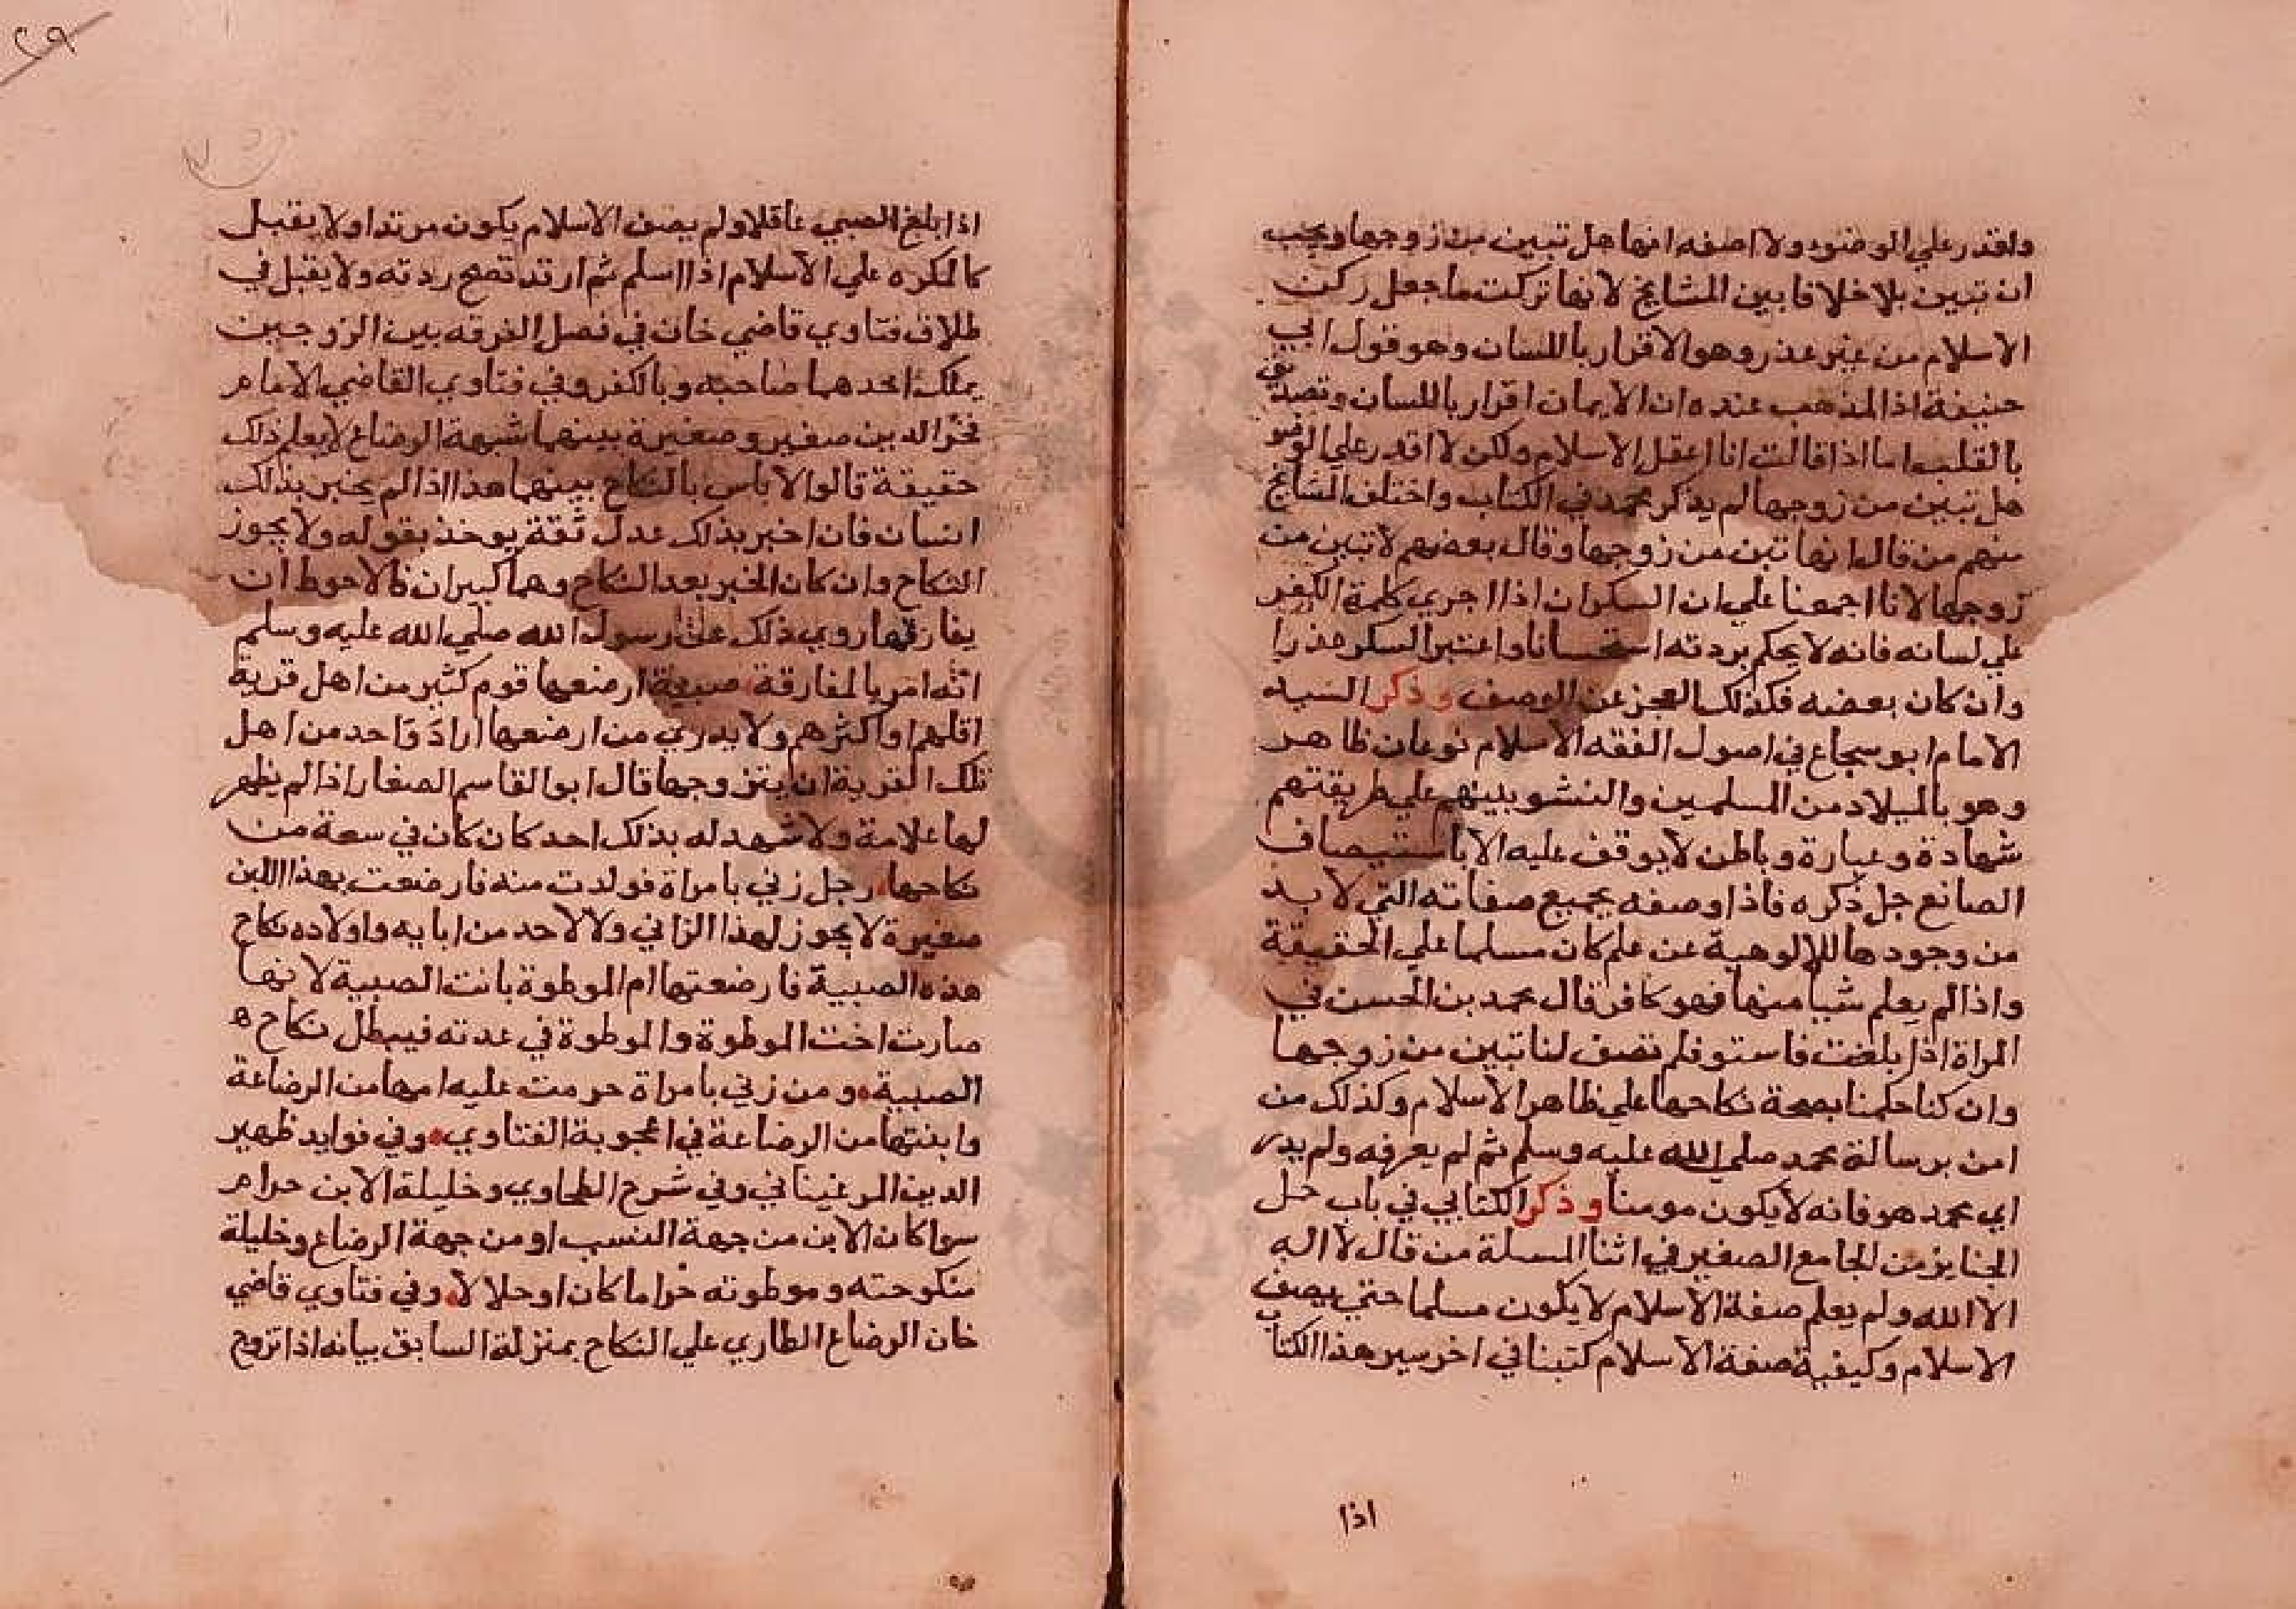 واقدر علي الوضو ولا اصفه انها هل تبين من زوجها ويجب
ان تبين بلا خلاف بين المشايخ لانها تركت ما جعل ركن
الاسلام من غير عذر وهو الاقرار باللسان وهو قول ابي
حنيفة اذ المذهب عنده ان الايمان اقرار باللسان وتصديق
بالقلب اما اذا قالت انا اعقل الاسلام ولكن لا اقدر علي الوصف
هل تبين من زوجها لم يذكر محمد في الكتاب واختلف المشايخ
منهم من قال انها تبين من زوجها وقال بعضهم لا تبين من
زوجها لانا اجمعنا علي ان السكران اذا اجري كلمة الكفر
علي لسانه فانه لا يحكم بردته استحسانا واعتبر السكر عذرا
وان كان بعضه فكذلك العجز عن الوصف وذكر السيد
الامام ابو سجاع في اصول الفقه الاسلام نوعان ظاهر
وهو بالميلاد من المسلمين والنشو بينهم علي طريقتهم
شهادة وعبارة وباطن لا يوقف عليه الا باستيصاف
الصانع جل ذكره فاذا وصفه بجميع صفاته التي لا بد
من وجودها للالوهية عن علم كان مسلما علي الحقيقة
واذا لم يعلم شيا منها فهو كافر قال محمد بن الحسن في
المراة اذا بلغت فاستو فلم تصف لنا تبين من زوجها
وان كنا حكمنا بصحة نكاحها علي ظاهر الاسلام وكذلك من
امن برسالة محمد صلي الله عليه وسلم ثم لم يعرفه ولم يدر
اي محمد هو فانه لا يكون مومنا وذكر الكتابي في باب حل
الجنايز من الجامع الصغير في اثنا المسلة من قال لا اله
الا الله ولم يعلم صفة الاسلام لا يكون مسلما حتي يصف
الاسلام وكيفية صفة الاسلام كتبنا في اخر سير هذا الكتاب
اذا
٢٩
اذا بلغ الصبي عاقلا ولم يصف الاسلام يكون مرتدا ولا يقبل
كالمكره علي الاسلام اذا اسلم ثم ارتد تصح ردته ولا يقبل في
طلاق فتاوي قاضي خان في فصل الفرقه بين الزوجين
يملك احدهما صاحبه وبالكفر وفي فتاوي القاضي الامام
فخر الدين صغير وصغيرة بينهما شبهة الرضاع لا يعلم ذلك
حقيقة قالوا لا باس بالنكاح بينهما هذا اذا لم يخبر بذلك
انسان فان اخبر بذلك عدل ثقة يوخذ بقوله ولا يجوز
النكاح وان كان الخبر بعد النكاح وهما كبيران فالاحوط ان
يفارقها روي ذلك عن رسول الله صلي الله عليه وسلم
انه امر بالمفارقة صبية ارضعها قوم كثير من اهل قرية
اقلهم او اكثرهم ولا يدري من ارضعها اراد واحد من اهل
تلك القرية ان يتزوجها قال ابو القاسم الصفار اذا لم يظهر
لها علامة ولا شهد له بذلك احد كان كان في سعة من
نكاحها رجل زني بامراة فولدت منه فارضعت بهذا اللبن
صغيرة لا يجوز لهذا الزاني ولا لاحد من ابايه واولاده نكاح
هذه الصبية فارضعتها ام الموطوة بانت الصبية لانها
صارت اخت الموطوة والموطوة في عدته فيبطل نكاح ه
الصبية ومن زني بامراة حرمت عليه امها من الرضاعة
وابنتها من الرضاعة في اعجوبة الفتاوي وفي فوايد ظهير
الدين المرغيناني وفي شرح الطحاوي وخليلة الابن حرام
سوا كان الابن من جهة النسب او من جهة الرضاع وخليلة
منكوحته وموطوته حراما كان او حلالا وفي فتاوي قاضي
خان الرضاع الطاري علي النكاح بمنزلة السابق بيانه اذا تزوج